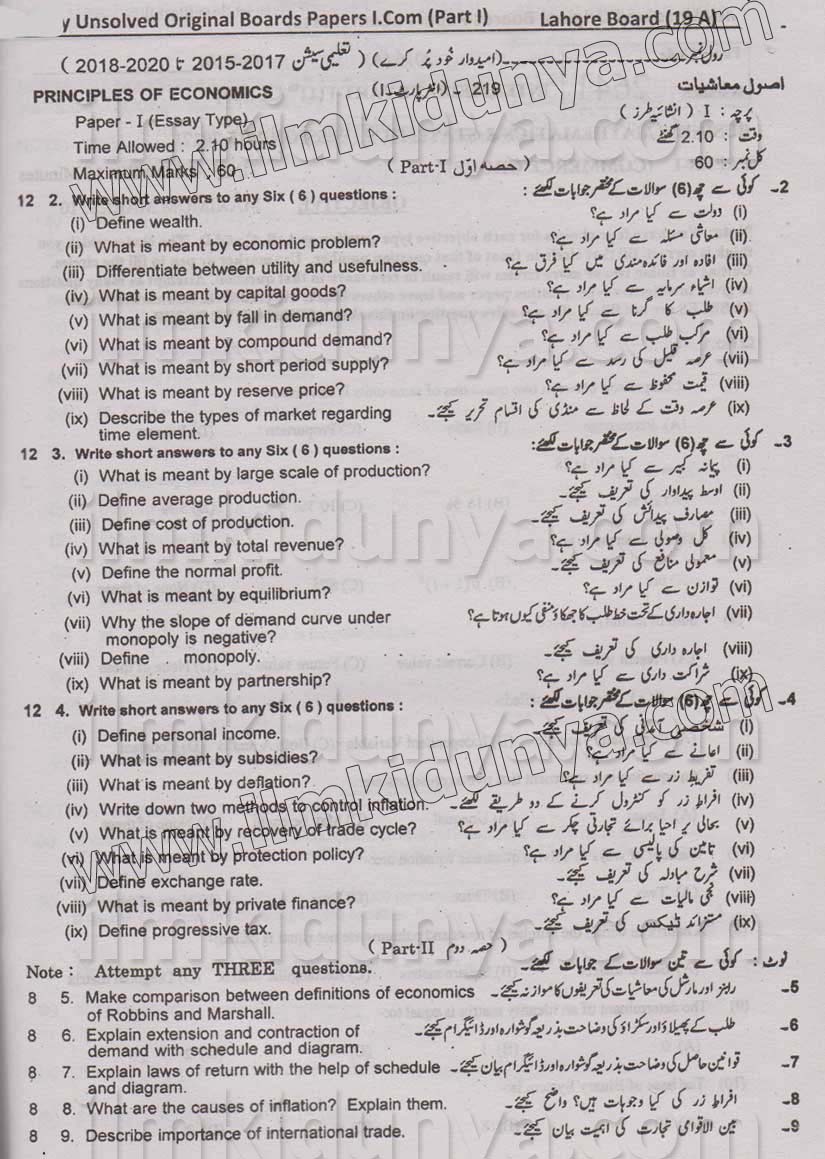 y Unsolved Original Boards Papers I.Com (Part I) Lahore Board (19 A)
رول نمبر ـــــــــــ (امیدوار خود پُر کرے) (تعلیمی سیشن 2015-2017 تا 2018-2020)
اصول معاشیات 219 - (انٹر پارٹ-I) PRINCIPLES OF ECONOMICS
پرچہ : I (انشائیہ طرز) Paper - I (Essay Type)
وقت : 2.10 گھنٹے Time Allowed : 2.10 hours
کل نمبر : 60 (حصہ اوّل Part-I) Maximum Marks : 60
12 2. Write short answers to any Six ( 6 ) questions : 2- کوئی سے چھ (6) سوالات کے مختصر جوابات لکھئے :
(i) Define wealth. (i) دولت سے کیا مراد ہے؟
(ii) What is meant by economic problem? (ii) معاشی مسئلہ سے کیا مراد ہے؟
(iii) Differentiate between utility and usefulness. (iii) افادہ اور فائدہ مندی میں کیا فرق ہے؟
(iv) What is meant by capital goods? (iv) اشیاء سرمایہ سے کیا مراد ہے؟
(v) What is meant by fall in demand? (v) طلب کا گرنا سے کیا مراد ہے؟
(vi) What is meant by compound demand? (vi) مرکب طلب سے کیا مراد ہے؟
(vii) What is meant by short period supply? (vii) عرصہ قلیل کی رسد سے کیا مراد ہے؟
(viii) What is meant by reserve price? (viii) قیمت محفوظ سے کیا مراد ہے؟
(ix) Describe the types of market regarding (ix) عرصہ وقت کے لحاظ سے منڈی کی اقسام تحریر کیجئے۔
time element.
12 3. Write short answers to any Six ( 6 ) questions : 3- کوئی سے چھ (6) سوالات کے مختصر جوابات لکھئے:
(i) What is meant by large scale of production? (i) پیمانہ کبیر سے کیا مراد ہے؟
(ii) Define average production. (ii) اوسط پیداوار کی تعریف کیجئے۔
(iii) Define cost of production. (iii) مصارف پیدائش کی تعریف کیجئے۔
(iv) What is meant by total revenue? (iv) کل وصولی سے کیا مراد ہے؟
(v) Define the normal profit. (v) معمولی منافع کی تعریف کیجئے۔
(vi) What is meant by equilibrium? (vi) توازن سے کیا مراد ہے؟
(vii) Why the slope of demand curve under (vii) اجارہ داری کے تحت خط طلب کا جھکاؤ منفی کیوں ہوتا ہے؟
monopoly is negative?
(viii) Define monopoly. (viii) اجارہ داری کی تعریف کیجئے۔
(ix) What is meant by partnership? (ix) شراکت داری سے کیا مراد ہے؟
12 4. Write short answers to any Six ( 6 ) questions : 4- کوئی سے چھ (6) سوالات کے مختصر جوابات لکھئے :
(i) Define personal income. (i) شخصی آمدنی کی تعریف کیجئے۔
(ii) What is meant by subsidies? (ii) اعانے سے کیا مراد ہے؟
(iii) What is meant by deflation? (iii) تفریط زر سے کیا مراد ہے؟
(iv) Write down two methods to control inflation. (iv) افراط زر کو کنٹرول کرنے کے دو طریقے لکھئے۔
(v) What is meant by recovery of trade cycle? (v) بحالی بر احیا برائے تجارتی چکر سے کیا مراد ہے؟
(vi) What is meant by protection policy? (vi) تامین کی پالیسی سے کیا مراد ہے؟
(vii) Define exchange rate. (vii) شرح مبادلہ کی تعریف کیجئے۔
(viii) What is meant by private finance? (viii) نجی مالیات سے کیا مراد ہے؟
(ix) Define progressive tax. (ix) متزائد ٹیکس کی تعریف کیجئے۔
(حصہ دوم Part-II)
Note : Attempt any THREE questions. نوٹ : کوئی سے تین سوالات کے جوابات لکھئے۔
8 5. Make comparison between definitions of economics 5- رابنز اور مارشل کی معاشیات کی تعریفوں کا موازنہ کیجئے۔
of Robbins and Marshall.
8 6. Explain extension and contraction of 6- طلب کے پھیلاؤ اور سکڑاؤ کی وضاحت بذریعہ گوشوارہ اور ڈائیگرام کیجئے۔
demand with schedule and diagram.
8 7. Explain laws of return with the help of schedule 7- قوانین حاصل کی وضاحت بذریعہ گوشوارہ اور ڈائیگرام بیان کیجئے۔
and diagram.
8 8. What are the causes of inflation? Explain them. 8- افراط زر کی کیا وجوہات ہیں؟ واضح کیجئے۔
8 9. Describe importance of international trade. 9- بین الاقوامی تجارت کی اہمیت بیان کیجئے۔
www.ilmkidunya.com
ilmkidunya.com